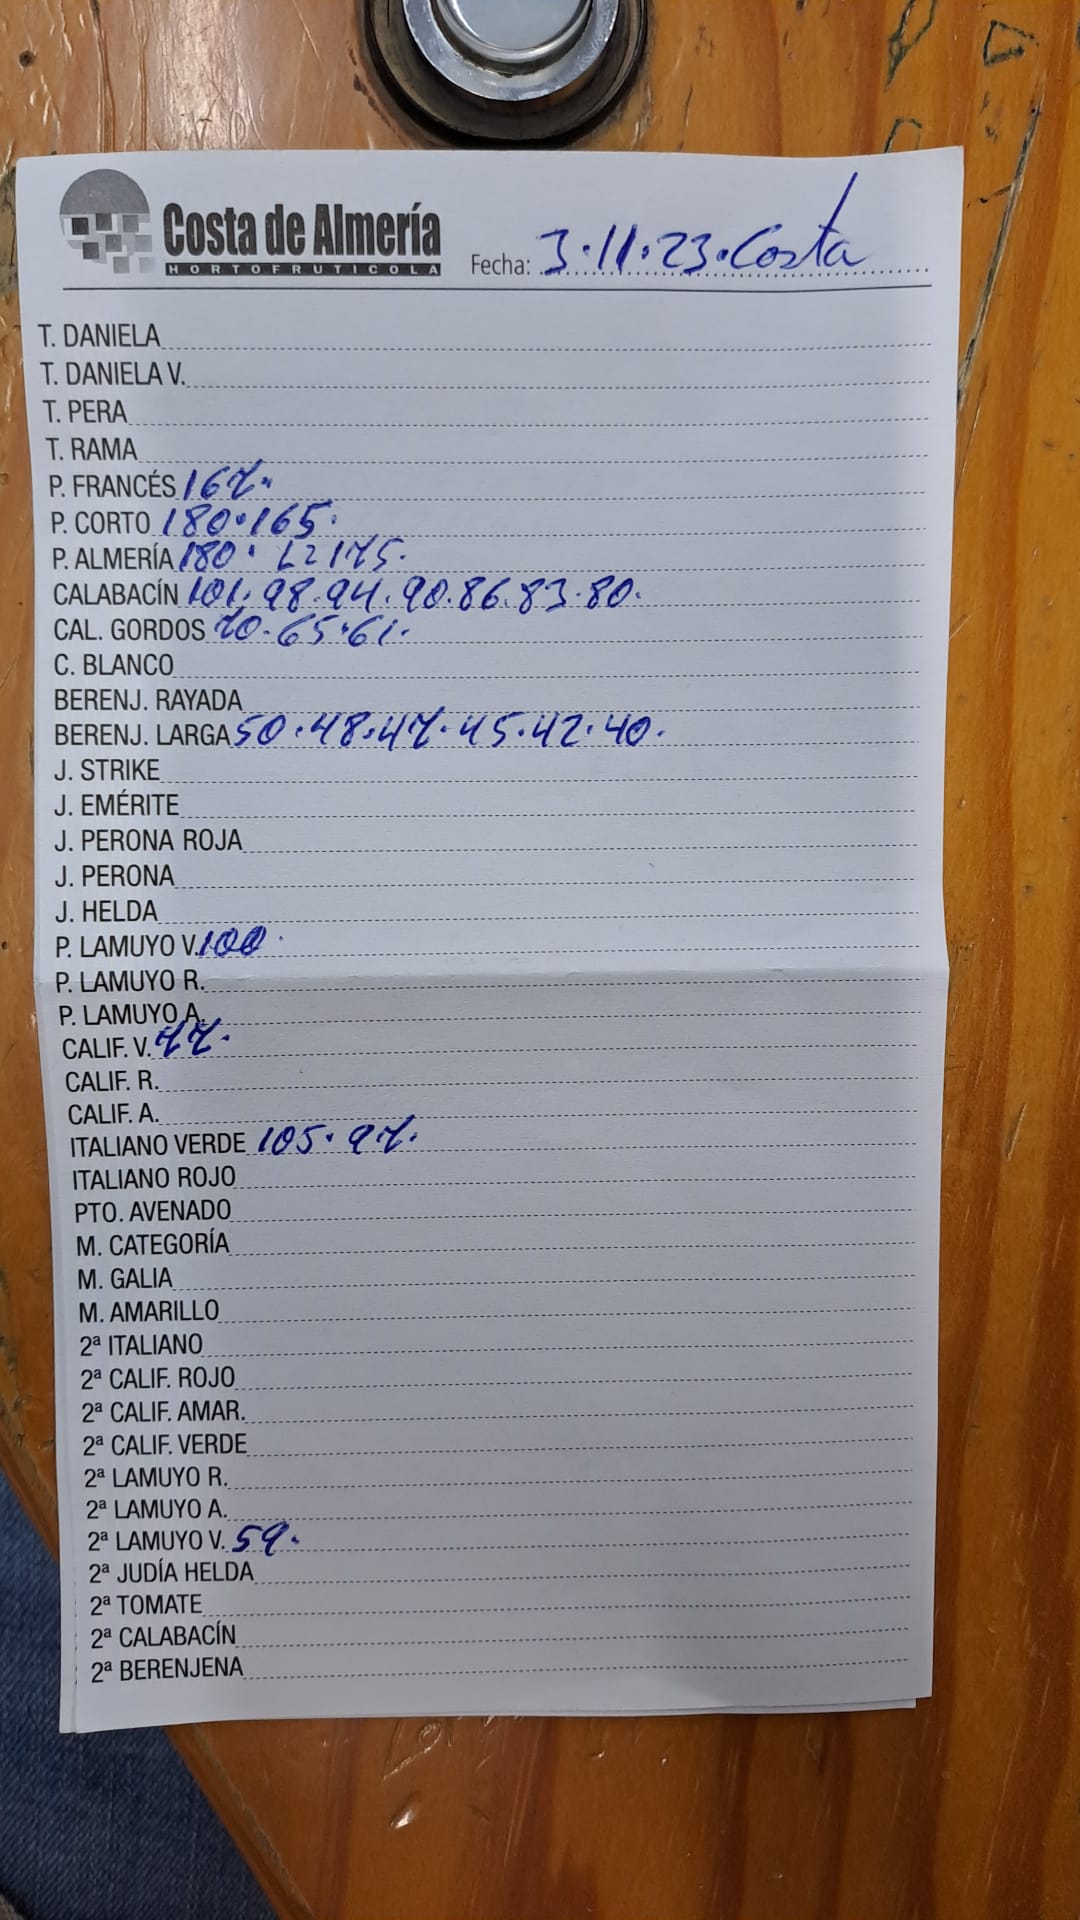 Costa de Almería
HORTOFRUTICOLA
Fecha: 3.11.23. Costa
T. DANIELA
T. DANIELA V.
T. PERA
T. RAMA
P. FRANCÉS 167.
P. CORTO 180.165.
P. ALMERÍA 180. L2 175.
CALABACÍN 101.98.94.90.86.83.80.
CAL. GORDOS 70.65.61.
C. BLANCO
BERENJ. RAYADA
BERENJ. LARGA 50.48.47.45.42.40.
J. STRIKE
J. EMÉRITE
J. PERONA ROJA
J. PERONA
J. HELDA
P. LAMUYO V. 100.
P. LAMUYO R.
P. LAMUYO A.
CALIF. V. 77.
CALIF. R.
CALIF. A.
ITALIANO VERDE 105.97.
ITALIANO ROJO
PTO. AVENADO
M. CATEGORÍA
M. GALIA
M. AMARILLO
2ª ITALIANO
2ª CALIF. ROJO
2ª CALIF. AMAR.
2ª CALIF. VERDE
2ª LAMUYO R.
2ª LAMUYO A.
2ª LAMUYO V. 59.
2ª JUDÍA HELDA
2ª TOMATE
2ª CALABACÍN
2ª BERENJENA